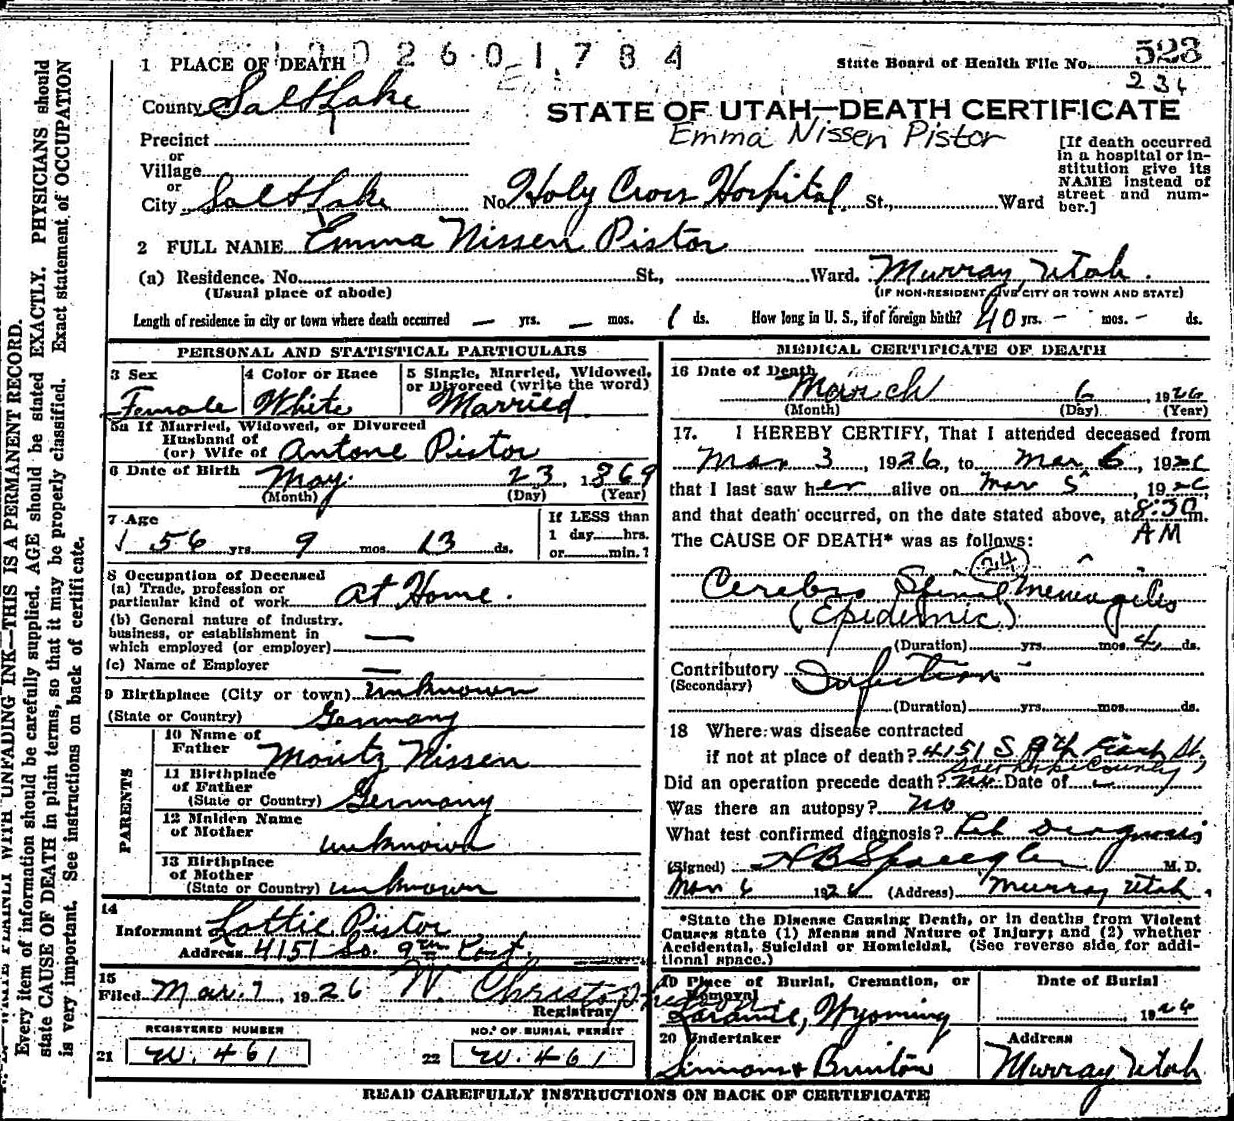 2601784
1 PLACE OF DEATH
State Board of Health File No. 523
236
County Salt Lake
STATE OF UTAH—DEATH CERTIFICATE
Emma Nissen Pistor
Precinct
or
Village
or
City Salt Lake No. Holy Cross Hospital St., Ward
[If death occurred in a hospital or institution give its NAME instead of street and number.]
2 FULL NAME Emma Nissen Pistor
(a) Residence. No. St., Ward. Murray, Utah.
(Usual place of abode) (IF NON-RESIDENT GIVE CITY OR TOWN AND STATE)
Length of residence in city or town where death occurred — yrs. — mos. 1 ds. How long in U. S., if of foreign birth? 40 yrs. - mos. - ds.
PERSONAL AND STATISTICAL PARTICULARS
3 Sex Female
4 Color or Race White
5 Single, Married, Widowed, or Divorced (write the word) Married.
5a If Married, Widowed, or Divorced
Husband of
(or) Wife of Antone Pistor
6 Date of Birth May 23, 1869
(Month) (Day) (Year)
7 Age
56 yrs. 9 mos. 13 ds.
If LESS than
1 day hrs.
or min.?
8 Occupation of Deceased
(a) Trade, profession or
particular kind of work At Home.
(b) General nature of industry,
business, or establishment in
which employed (or employer) —
(c) Name of Employer —
9 Birthplace (City or town) unknown
(State or Country) Germany
PARENTS
10 Name of
Father Moritz Nissen
11 Birthplace
of Father
(State or Country) Germany
12 Maiden Name
of Mother unknown
13 Birthplace
of Mother
(State or Country) unknown
14
Informant Lottie Pistor
Address 4151 So. 9th East.
15
Filed Mar. 7, 1926 W. Christopherson
Registrar
REGISTERED NUMBER
21 W. 461
NO. OF BURIAL PERMIT
22 W. 461
MEDICAL CERTIFICATE OF DEATH
16 Date of Death March 6, 1926
(Month) (Day) (Year)
17. I HEREBY CERTIFY, That I attended deceased from
Mar 3, 1926, to Mar 6, 1926
that I last saw her alive on Mar 5, 1926
and that death occurred, on the date stated above, at 8:30 m.
AM
The CAUSE OF DEATH* was as follows:
24
Cerebro Spinal Meningitis
(Epidemic)
(Duration) yrs. mos. 4 ds.
Contributory Infection
(Secondary)
(Duration) yrs. mos. ds.
18 Where was disease contracted
if not at place of death? 4151 S 9th East St.
Salt Lake County
Did an operation precede death? No Date of -
Was there an autopsy? no
What test confirmed diagnosis? Lab Diagnosis
(Signed) M. D.
Mar 6 1926 (Address) Murray Utah.
*State the Disease Causing Death, or in deaths from Violent
Causes state (1) Means and Nature of Injury; and (2) whether
Accidental, Suicidal or Homicidal. (See reverse side for additional space.)
19 Place of Burial, Cremation, or
Removal
Laramie, Wyoming
Date of Burial
1926
20 Undertaker
Simmons & Brunton
Address
Murray Utah
READ CAREFULLY INSTRUCTIONS ON BACK OF CERTIFICATE
WITH UNFADING INK—THIS IS A PERMANENT RECORD.
Every item of information should be carefully supplied. AGE should be stated EXACTLY. PHYSICIANS should
state CAUSE OF DEATH in plain terms, so that it may be properly classified. Exact statement of OCCUPATION
is very important. See instructions on back of certificate.